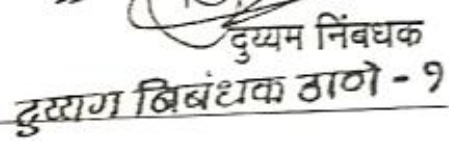 दुय्यम निंबधक
दुय्यम निबंधक ठाणे - १